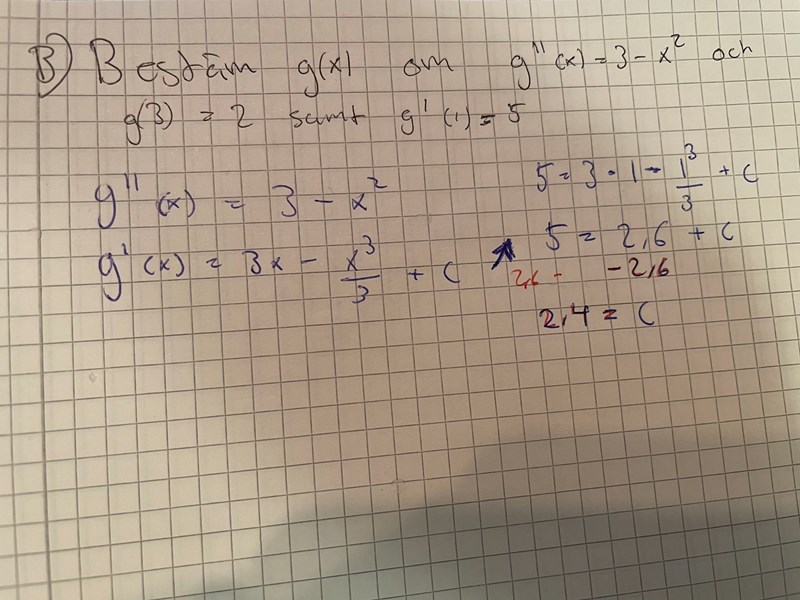 B) Bestäm g(x) om g''(x) = 3 - x² och
g(3) = 2 samt g'(1) = 5
g''(x) = 3 - x²
g'(x) = 3x - x³/3 + C
5 = 3 · 1 - 1³/3 + C
5 = 2,6 + C
2,6 - - 2,6
2,4 = C